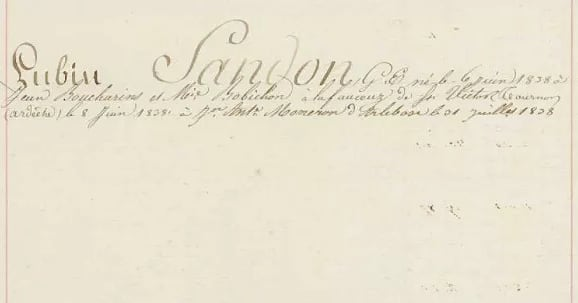 Lubin Sandon, G.E. né le 6 juin 1838 à
Jean Boucharins et Mie Bobichon à la faucouz de St Victor (Tournon
(ardèche) le 8 Juin 1838. à Jn Ante Momeron d'Arlebosc le 31 juillet 1838